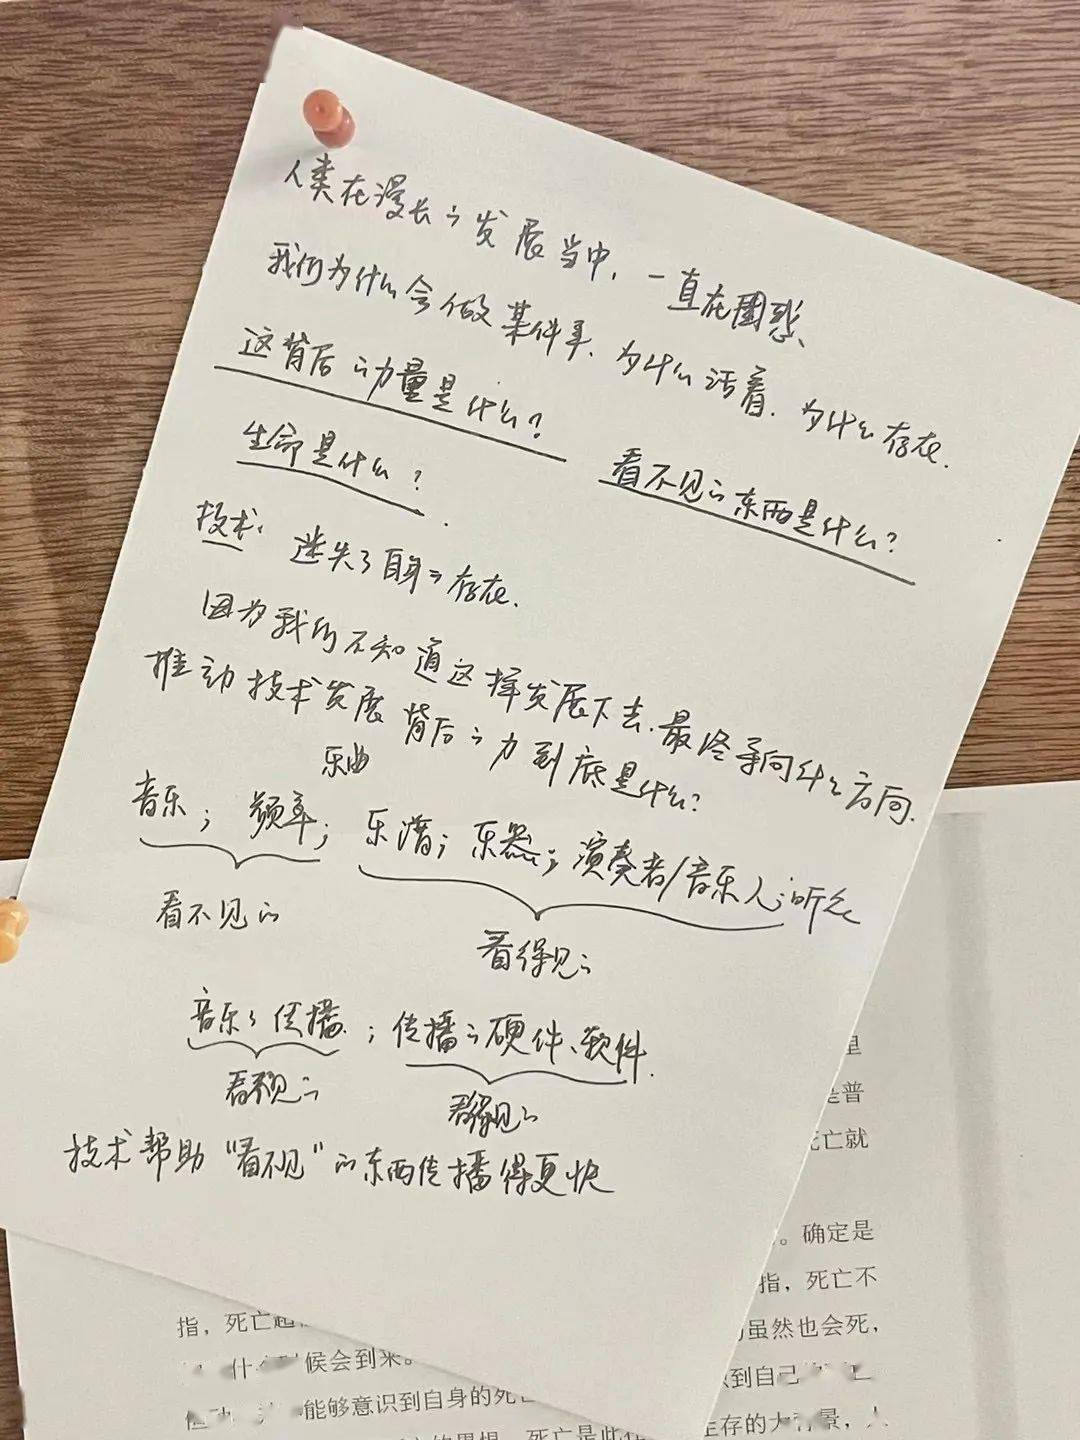 人类在漫长的发展当中，一直在困惑
我们为什么会做某件事、为什么活着、为什么存在.
这背后的力量是什么？
看不见的东西是什么？
生命是什么？
技术： 迷失了自身的存在.
因为我们不知道这样发展下去.最终导向什么方向.
推动技术发展背后的力到底是什么？
乐曲
音乐；频率；乐谱；乐器；演奏者/音乐人；听众
看不见的
看得见的
音乐的传播；传播的硬件、软件.
看不见的
看得见的
技术帮助“看不见”的东西传播得更快
里
是普
死亡就
。确定是
指，死亡不
指，死亡超
虽然也会死，
什 候会到来。
到自己
能够意识到自身的死
生存的大背景，人
的畏惧 死亡是此